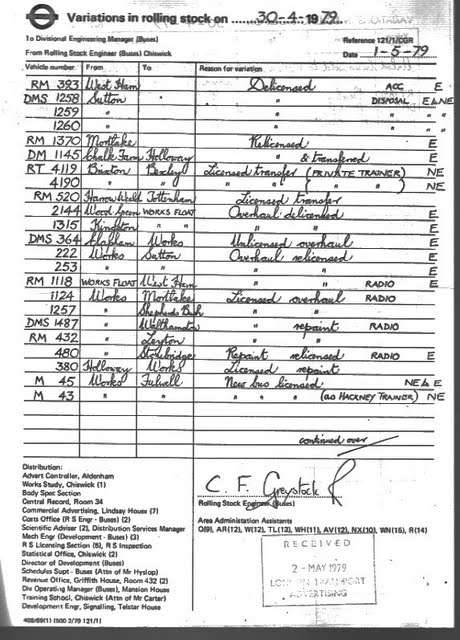 Variations in rolling stock on 30-4-1979.
To Divisional Engineering Manager (Buses) Reference 121/1/CGR
From Rolling Stock Engineer (Buses) Chiswick Date 1-5-79
Vehicle number From To Reason for variation
RM 393 West Ham Delicensed ACC E
DMS 1258 Sutton " DISPOSAL E&NE
1259 " " " "
1260 " " " "
RM 1370 Mortlake Relicensed E
DM 1145 Chalk Farm Holloway " & transferred E
RT 4119 Brixton Bexley Licensed transfer (PRIVATE TRAINER) NE
4190 " " " " ( " " ) NE
RM 520 Harrow Weald Tottenham Licensed transfer
2144 Wood Green WORKS FLOAT Overhaul delicensed E
1315 Kingston " " " E
DMS 364 Clapham Works Unlicensed overhaul E
222 Works Sutton Overhaul relicensed E
253 " " " " E
RM 1118 WORKS FLOAT West Ham " " RADIO E
1124 Works Mortlake Licensed overhaul RADIO
1257 " Shepherds Bush " "
DMS 1487 " Walthamstow " repaint RADIO
RM 432 " Leyton " "
480 " Stonebridge Repaint relicensed RADIO E
380 Holloway Works Licensed repaint
M 45 Works Fulwell New bus licensed NE & E
M 43 " " " " " (as HACKNEY TRAINER) NE
continued over
Distribution:
Advert Controller, Aldenham
Works Study, Chiswick (1)
Body Spec Section
Central Record, Room 34
Commercial Advertising, Lindsay House (7)
Costs Office (R S Engr - Buses) (2)
Scientific Adviser (2), Distribution Services Manager
Mech Engr (Development - Buses) (3)
R S Licensing Section (5), R S Inspection
Statistical Office, Chiswick (2)
Director of Development (Buses)
Schedules Supt - Buses (Attn of Mr Hyslop)
Revenue Office, Griffith House, Room 432 (2)
Div Operating Manager (Buses), Mansion House
Training School, Chiswick (Attn of Mr Carter)
Development Engr, Signalling, Telstar House
C. F. Greystock
Rolling Stock Engineer (Buses)
Area Administation Assistants
O(9), AR(12), W(12), TL(13), WH(11), AV(12), NX(10), WN(15), R(14)
RECEIVED
2 - MAY 1979
LONDON TRANSPORT
ADVERTISING
408/69(1) (500 2/79 121/1)